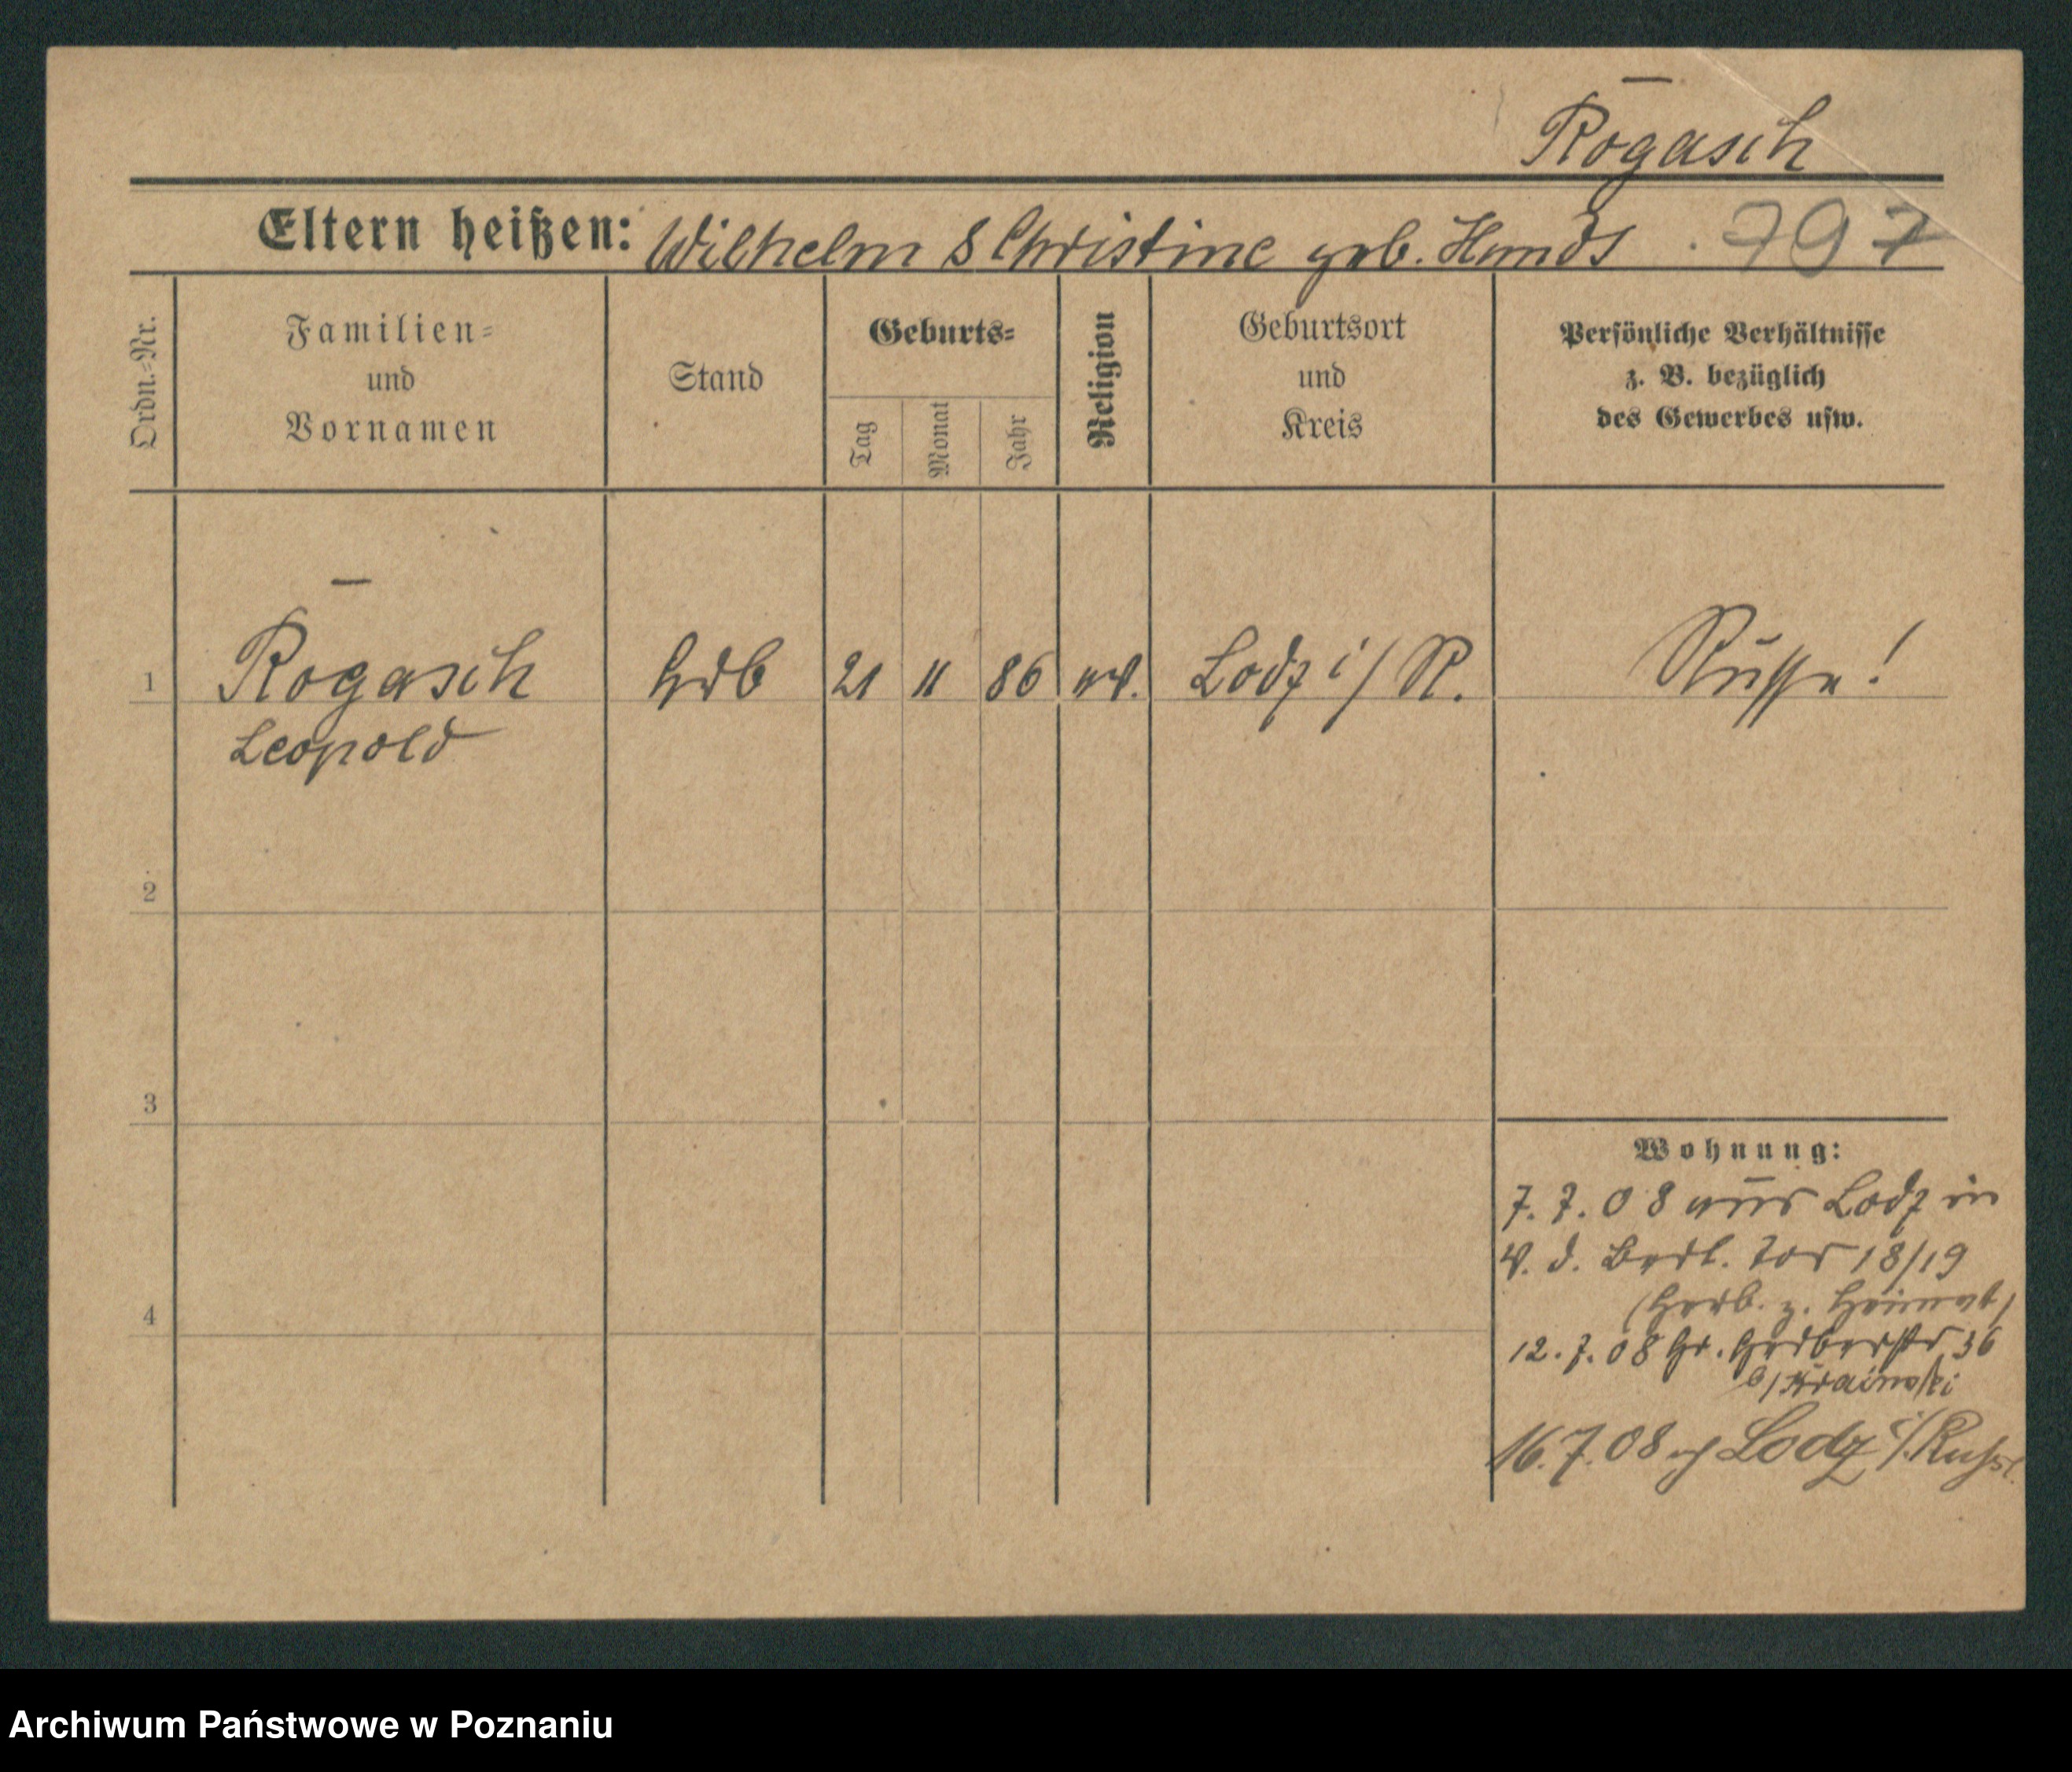 Rogasch
Eltern heißen: Wilhelm & Christine geb. Hunds 797
Ordn.-Nr.
Familien-
und
Vornamen
Stand
Geburts-
Tag
Monat
Jahr
Religion
Geburtsort
und
Kreis
Persönliche Verhältnisse
z. B. bezüglich
des Gewerbes usw.
1 Rogasch 21 11 86 ev. Lodz i/R. Russe!
Leopold
2
3
Wohnung:
7.7.08 aus Lodz in
V. d. Berl. Tor 18/19
4
(Herb. z. Heimat)
12.7.08 Gr. Gerberstr 36
b/Krainski
16.7.08 Lodz i/Russl.
Archiwum Państwowe w Poznaniu